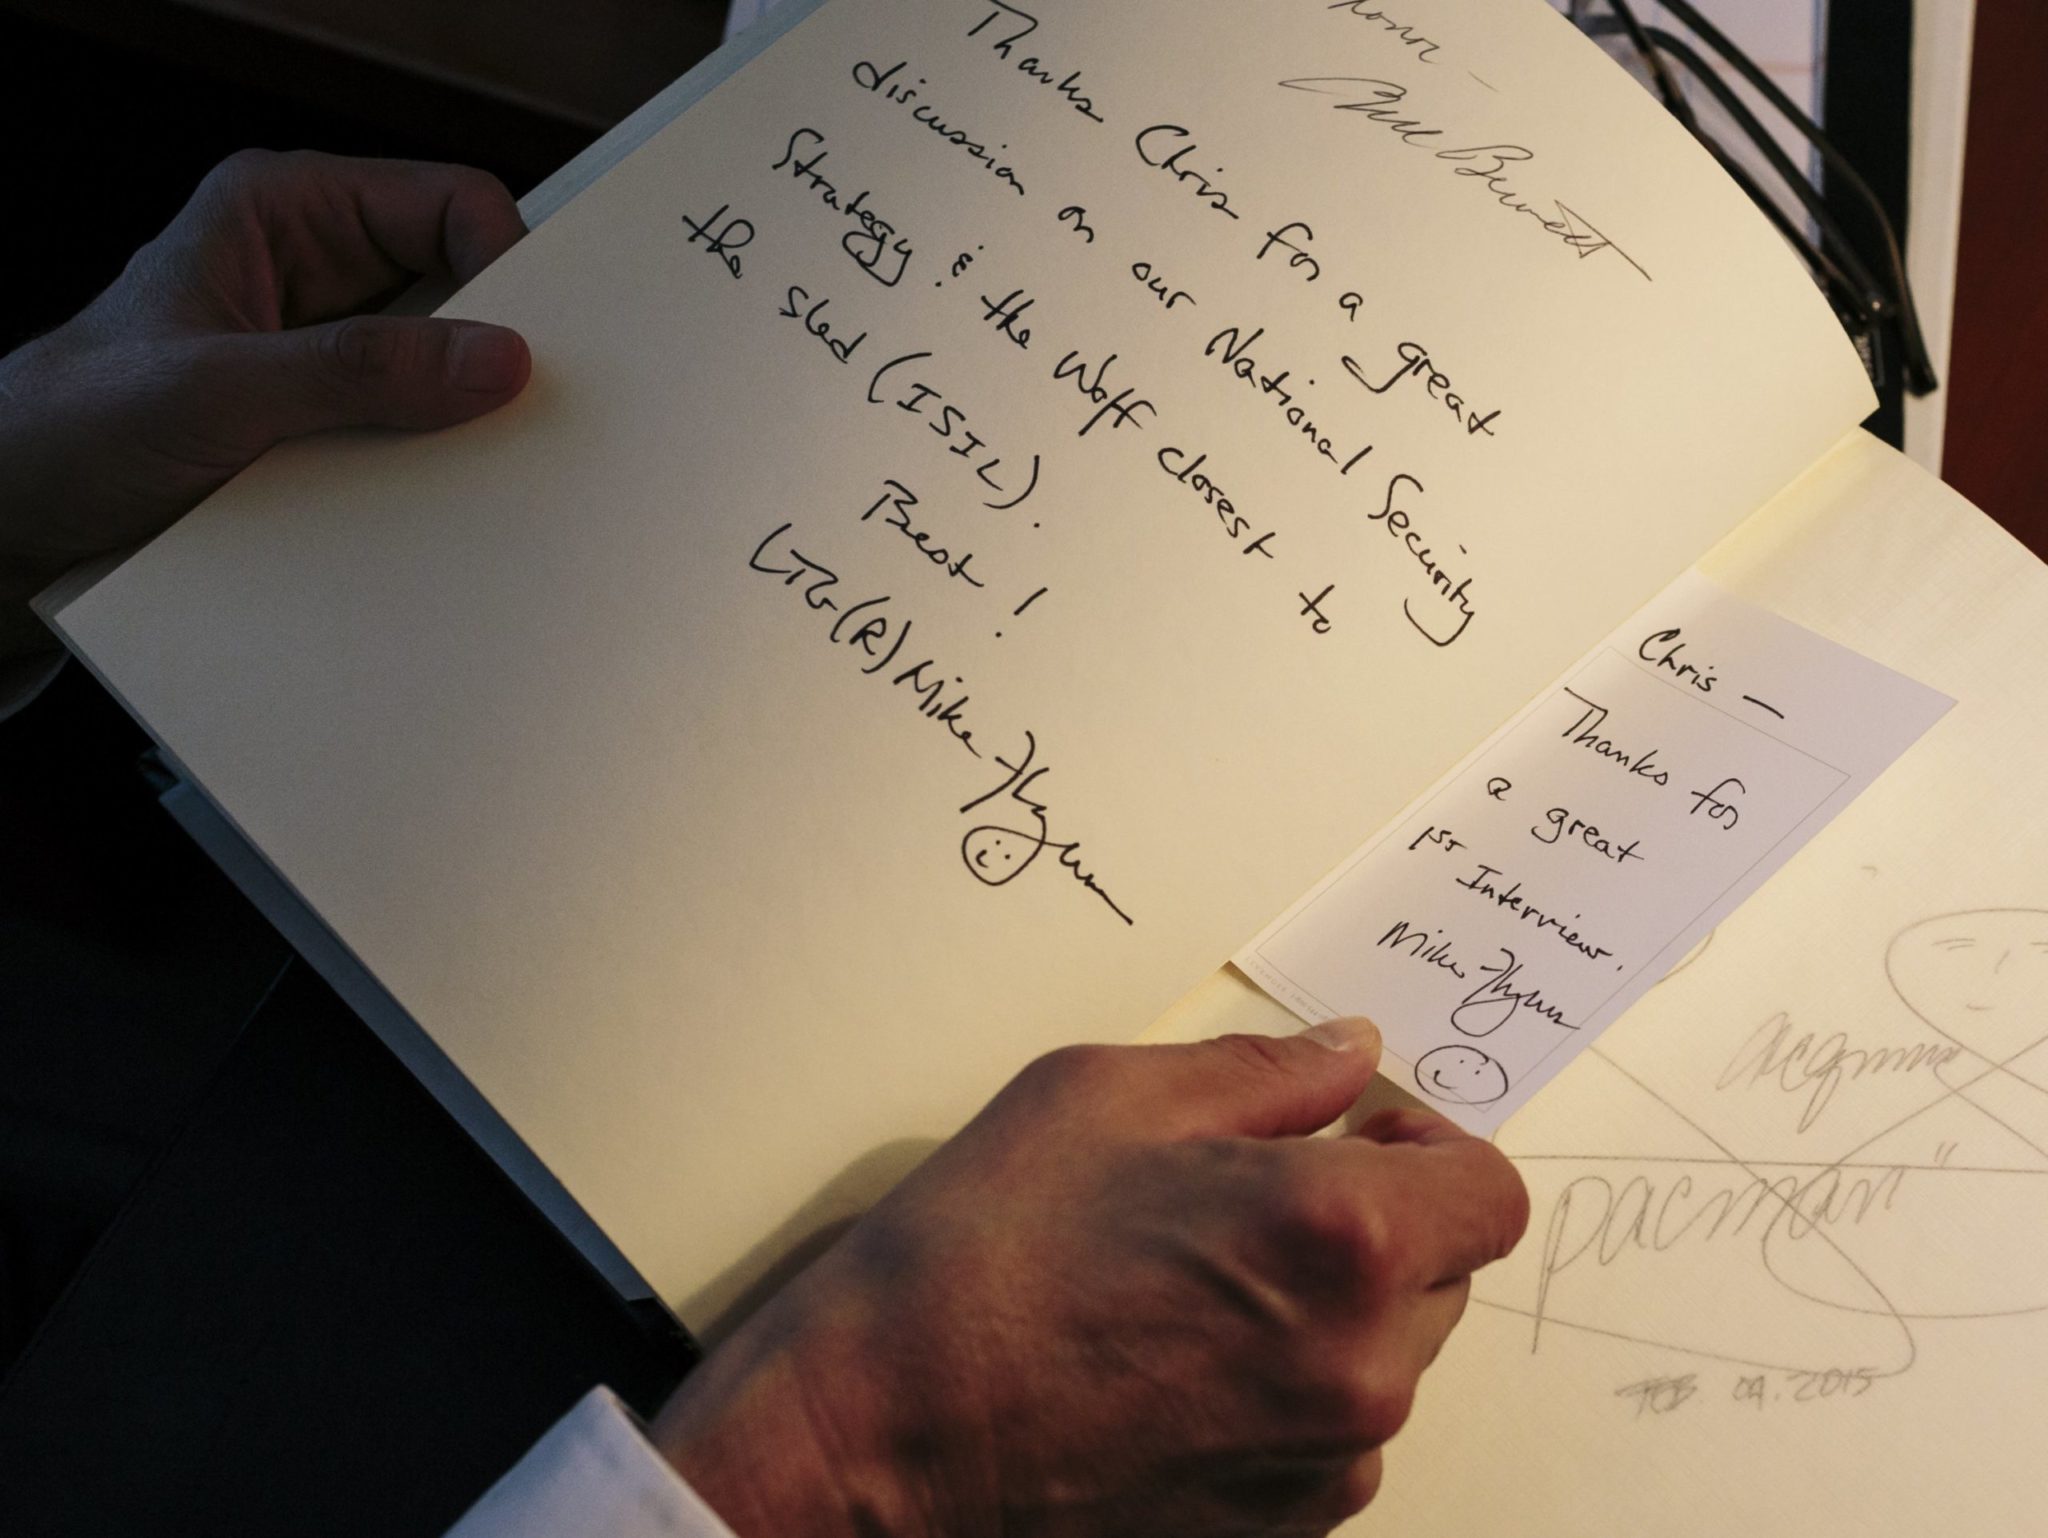 Thanks Chris for a great
discussion on our National Security
Strategy & the Wolf closest to
the sled (ISIL).
Best!
LTG(R) Mike Flynn
Bennett
Chris —
Thanks for
a great
1st Interview.
Mike Flynn
pacman"
FEB 04. 2015